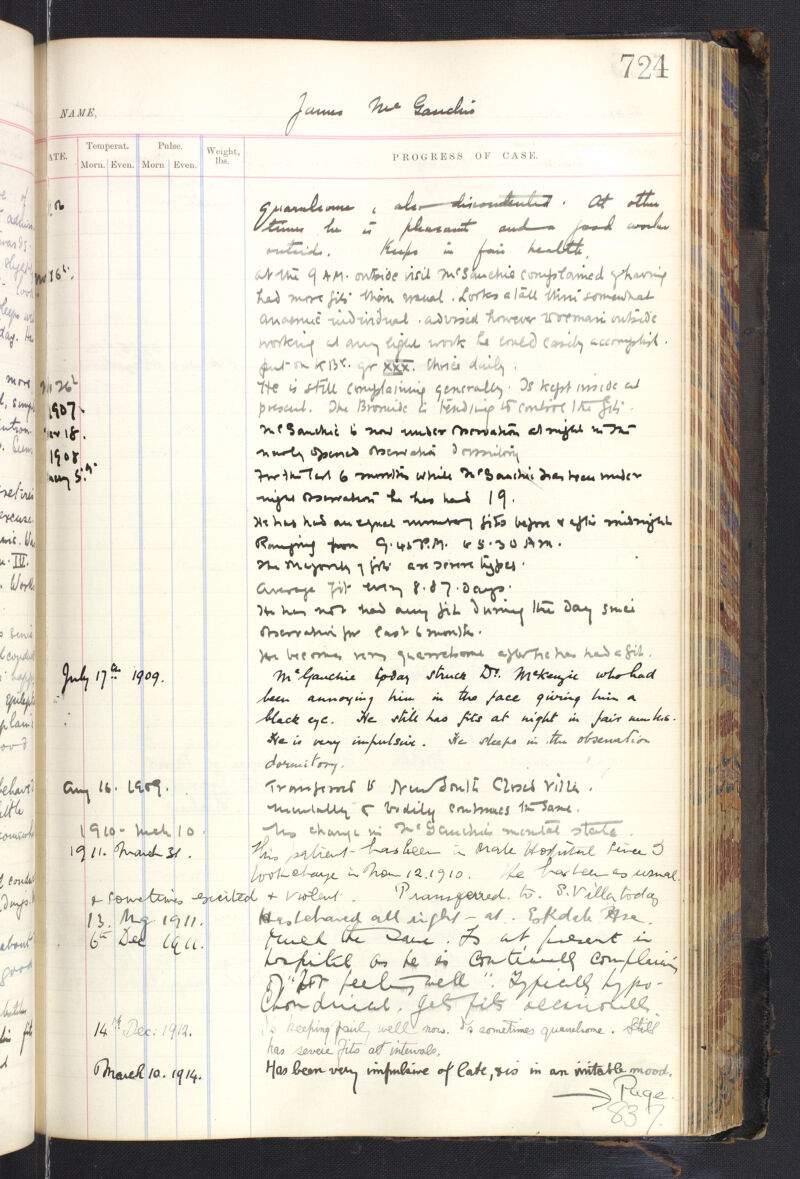 724
NAME, James McGauchie
DATE. Temperat. Pulse. Weight, lbs. PROGRESS OF CASE.
Morn. Even. Morn Even.
quarrelsome, also discontented. At other
times he is pleasant and a good worker
outside. Keeps in fair health.
At the 9 A.M. outside visit McGauchie complained of having
had more fits than usual. Looks a tall thin somewhat
anaemic individual. advised however to remain outside
working at any light work he could easily accomplish.
put on K Br. gr XXX. thrice daily.
He is still complaining generally. Is kept inside at
present. The Bromide is tending to control the fits.
1907.
Nov 18. McGauchie is now under observation at night in the
newly opened observation Dormitory
1908
May 5th. For the last 6 months while McGauchie has been under
night observation he has had 19.
He has had an equal number of fits before & after midnight
Ranging from 9.45 P.M. to 5.30 A.M.
The majority of fits are severe types.
Average fit every 8.07. days.
He has not had any fit during the day since
observation for last 6 months.
He becomes very quarrelsome after he has had a fit.
July 17th 1909. McGauchie today struck Dr. McKenzie who had
been annoying him in the face giving him a
black eye. He still has fits at night in fair numbers.
He is very impulsive. He sleeps in the observation
dormitory.
Aug 16. 1909. Transferred to New South Closed Villa.
Mentally & bodily continues the same.
1910 - Mch 10. No change in McGauchie's mental state.
1911. March 31. This patient has been in Male Hospital since I
took charge in Nov 12. 1910. He has been as usual
& sometimes excited & violent. Transferred to S. Villa today
13. 1911. Has behaved all right at Eskdale Hse.
6th Dec 1911. Much the same. Is at present in
hospital as he is continually complaining
of "not feeling well". Typically hypo-
chondriacal. Gets fits occasionally.
14th Dec: 1912. Is keeping fairly well now. Is sometimes quarrelsome. Still
has severe fits at intervals.
March 10. 1914. Has been very impulsive of late, & is in an irritable mood.
→ Page
837.